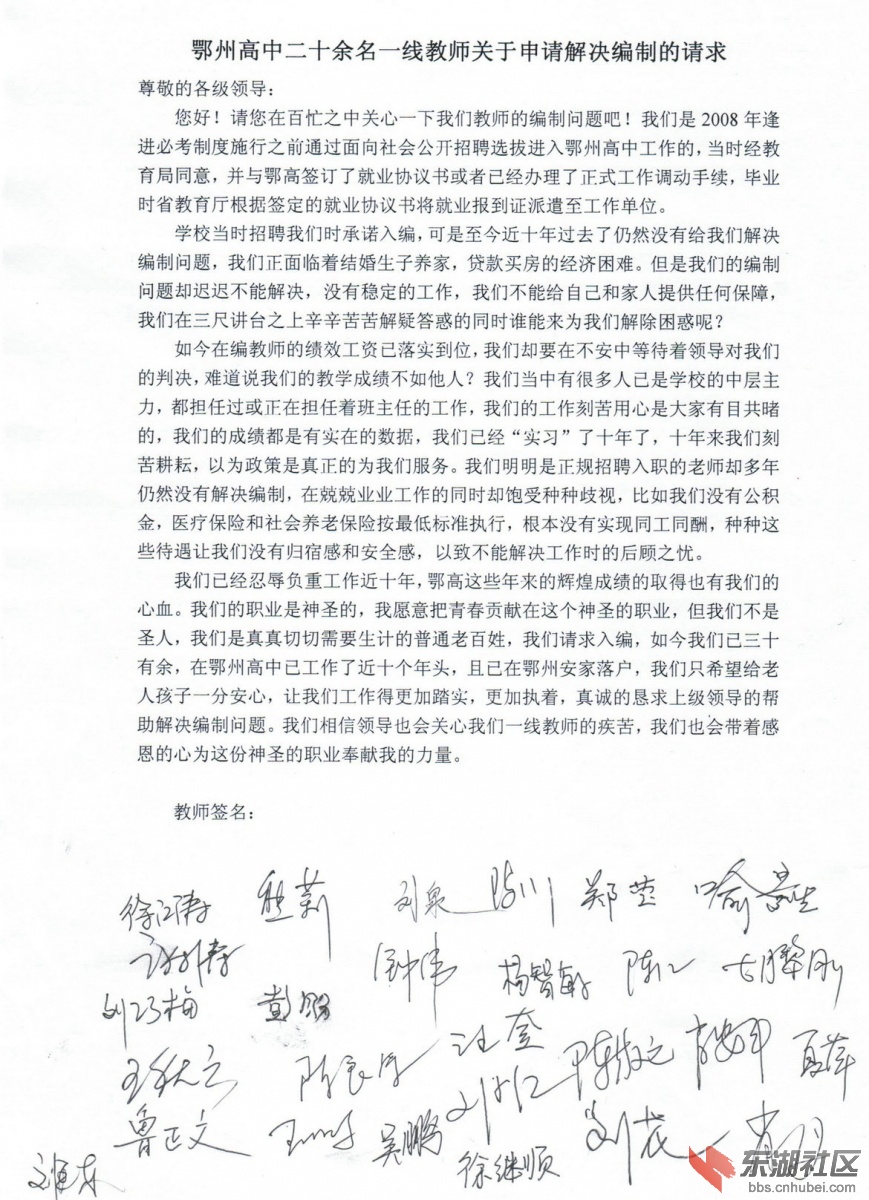 鄂州高中二十余名一线教师关于申请解决编制的请求
尊敬的各级领导：
您好！请您在百忙之中关心一下我们教师的编制问题吧！我们是 2008 年逢
进必考制度施行之前通过面向社会公开招聘选拔进入鄂州高中工作的，当时经教
育局同意，并与鄂高签订了就业协议书或者已经办理了正式工作调动手续，毕业
时省教育厅根据签定的就业协议书将就业报到证派遣至工作单位。
学校当时招聘我们时承诺入编，可是至今近十年过去了仍然没有给我们解决
编制问题，我们正面临着结婚生子养家，贷款买房的经济困难。但是我们的编制
问题却迟迟不能解决，没有稳定的工作，我们不能给自己和家人提供任何保障，
我们在三尺讲台之上辛辛苦苦解疑答惑的同时谁能来为我们解除困惑呢？
如今在编教师的绩效工资已落实到位，我们却要在不安中等待着领导对我们
的判决，难道说我们的教学成绩不如他人？我们当中有很多人已是学校的中层主
力，都担任过或正在担任着班主任的工作，我们的工作刻苦用心是大家有目共睹
的，我们的成绩都是有实在的数据，我们已经“实习”了十年了，十年来我们刻
苦耕耘，以为政策是真正的为我们服务。我们明明是正规招聘入职的老师却多年
仍然没有解决编制，在兢兢业业工作的同时却饱受种种歧视，比如我们没有公积
金，医疗保险和社会养老保险按最低标准执行，根本没有实现同工同酬，种种这
些待遇让我们没有归宿感和安全感，以致不能解决工作时的后顾之忧。
我们已经忍辱负重工作近十年，鄂高这些年来的辉煌成绩的取得也有我们的
心血。我们的职业是神圣的，我愿意把青春贡献在这个神圣的职业，但我们不是
圣人，我们是真真切切需要生计的普通老百姓，我们请求入编，如今我们已三十
有余，在鄂州高中已工作了近十个年头，且已在鄂州安家落户，我们只希望给老
人孩子一分安心，让我们工作得更加踏实，更加执着，真诚的恳求上级领导的帮
助解决编制问题。我们相信领导也会关心我们一线教师的疾苦，我们也会带着感
恩的心为这份神圣的职业奉献我的力量。
教师签名：
徐江涛 熊莉 刘泉 陈川 郑莹
杨智敏 陈江
刘巧梅 彭朋
汪奎 夏萍
鲁正文 吴鹏 徐继顺 刘花
东湖社区
bbs.cnhubei.com